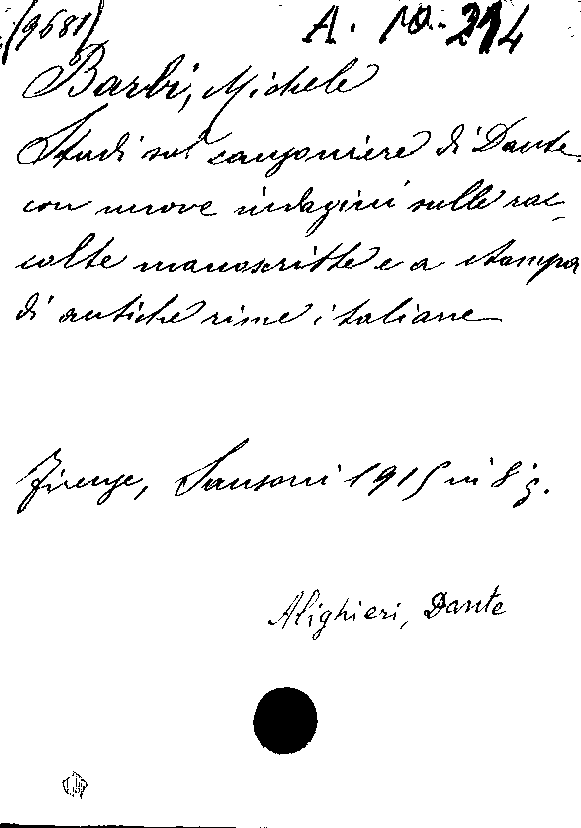 (9681)
A. 10. 214
Barbi, Michele
Studi sul canzoniere di Dante
con nuove indagini sulle rac-
colte manoscritte e a stampa
di antiche rime italiane
Firenze, Sansoni 1915 in 8°g.
Alighieri, Dante